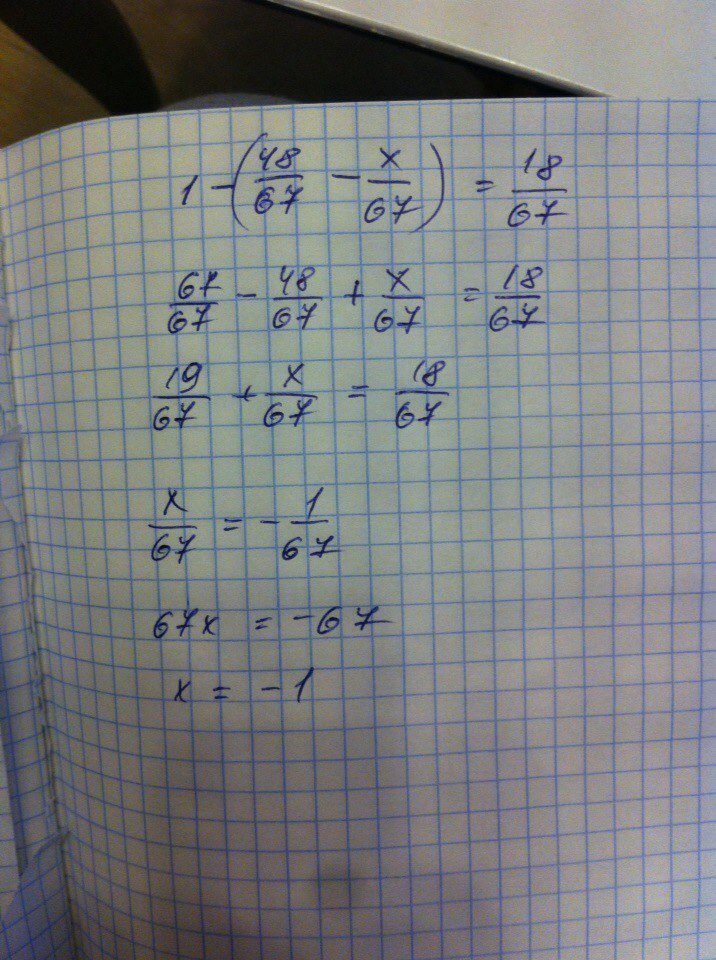 1 - (48/67 - x/67) = 18/67
67/67 - 48/67 + x/67 = 18/67
19/67 + x/67 = 18/67
x/67 = - 1/67
67x = -67
x = -1